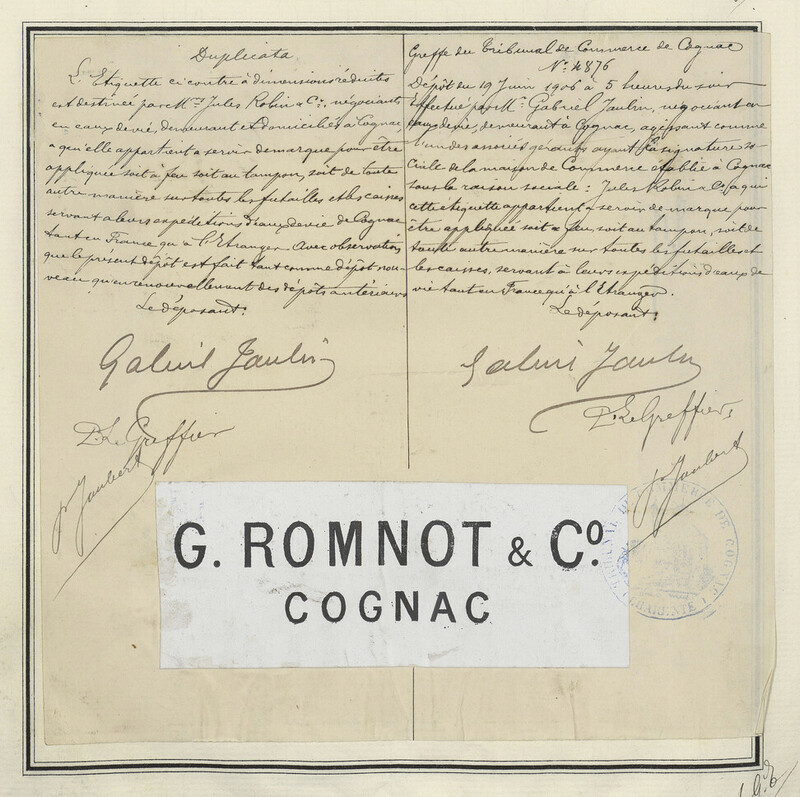 Duplicata
L'Etiquette ci contre à dimensions réduites
est destinée par Mrs Jules Robin & Cie, négociants
en eaux de vie, demeurant et domiciliés à Cognac,
à qu'elle appartient à servir de marque pour être
appliquée soit à feu soit au tampon, soit de toute
autre manière sur toutes les futailles et les caisses
servant à leurs expéditions d'eaux de vie de Cognac
tant en France qu'à l'Etranger. Avec observation
que le présent dépôt est fait tant comme dépôt nou-
veau qu'en renouvellement des dépôts antérieurs
Le déposant:
Gabriel Jaulin
Pr Le Greffier
Jaubert
Greffe du Tribunal de Commerce de Cognac
No. 4876
Dépôt du 19 Juin 1906 à 5 heures du soir
Effectué par Mr Gabriel Jaulin, négociant en
eaux de vie, demeurant à Cognac, agissant comme
l'un des associés gérants ayant la signature so-
ciale de la maison de Commerce établie à Cognac
sous la raison sociale: Jules Robin & Co à qui
cette étiquette appartient à servir de marque pour
être appliquée soit à feu, soit au tampon, soit de
toute autre manière sur toutes les futailles et
les caisses, servant à leurs expéditions d'eaux de
vie tant en France qu'à l'Etranger.
Le déposant:
Gabriel Jaulin
Pr Le Greffier,
Jaubert
G. ROMNOT & Co.
COGNAC
TRIBUNAL DE COMMERCE DE COGNAC
(CHARENTE)